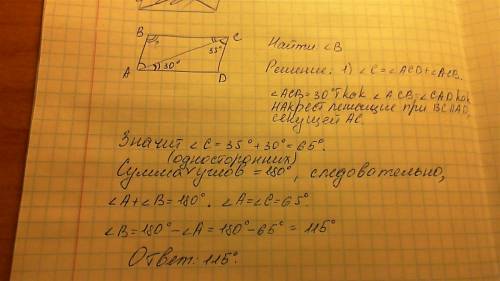 B
C
35°
A
30°
D
Найти: ∠B
Решение: 1) ∠C = ∠ACD + ∠ACB.
∠ACB = 30° Т как ∠ACB = ∠CAD как
накрест лежащие при BC||AD,
секущей AC.
Значит ∠C = 35° + 30° = 65°.
(односторонних)
Сумма углов = 180°, следовательно,
∠A + ∠B = 180°. ∠A = ∠C = 65°.
∠B = 180° - ∠A = 180° - 65° = 115°
Ответ: 115°.